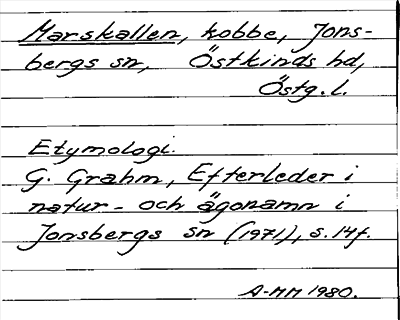 Marskallen, kobbe, Jons-
bergs sn, Östkinds hd,
Östg. l.
Etymologi.
G. Grahm, Efterleder i
natur- och ägonamn i
Jonsbergs sn (1971), s. 14f.
A-MM 1980.